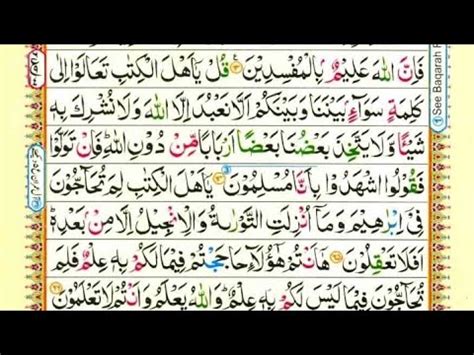 فَاِنَّ اللّٰهَ عَلِيْمٌۢ بِالْمُفْسِدِيْنَ ۟﴿۶۳﴾ قُلْ يٰۤاَهْلَ الْكِتٰبِ تَعَالَوْا اِلٰى
كَلِمَةٍ سَوَآءٍۭ بَيْنَنَا وَبَيْنَكُمْ اَلَّا نَعْبُدَ اِلَّا اللّٰهَ وَلَا نُشْرِكَ بِهٖ
شَيْـًٔا وَّلَا يَتَّخِذَ بَعْضُنَا بَعْضًا اَرْبَابًا مِّنْ دُوْنِ اللّٰهِ ؕ فَاِنْ تَوَلَّوْا
فَقُوْلُوا اشْهَدُوْا بِاَنَّا مُسْلِمُوْنَ ﴿۶۴﴾ يٰۤاَهْلَ الْكِتٰبِ لِمَ تُحَآجُّوْنَ
فِىْۤ اِبْرٰهِيْمَ وَمَاۤ اُنْزِلَتِ التَّوْرٰىةُ وَالْاِنْجِيْلُ اِلَّا مِنْۢ بَعْدِهٖ ؕ
اَفَلَا تَعْقِلُوْنَ ﴿۶۵﴾ هٰۤاَنْتُمْ هٰۤؤُلَآءِ حَاجَجْتُمْ فِيْمَا لَكُمْ بِهٖ عِلْمٌ فَلِمَ
تُحَآجُّوْنَ فِيْمَا لَيْسَ لَكُمْ بِهٖ عِلْمٌ ؕ وَاللّٰهُ يَعْلَمُ وَاَنْتُمْ لَا تَعْلَمُوْنَ ﴿۶۶﴾
See Baqarah